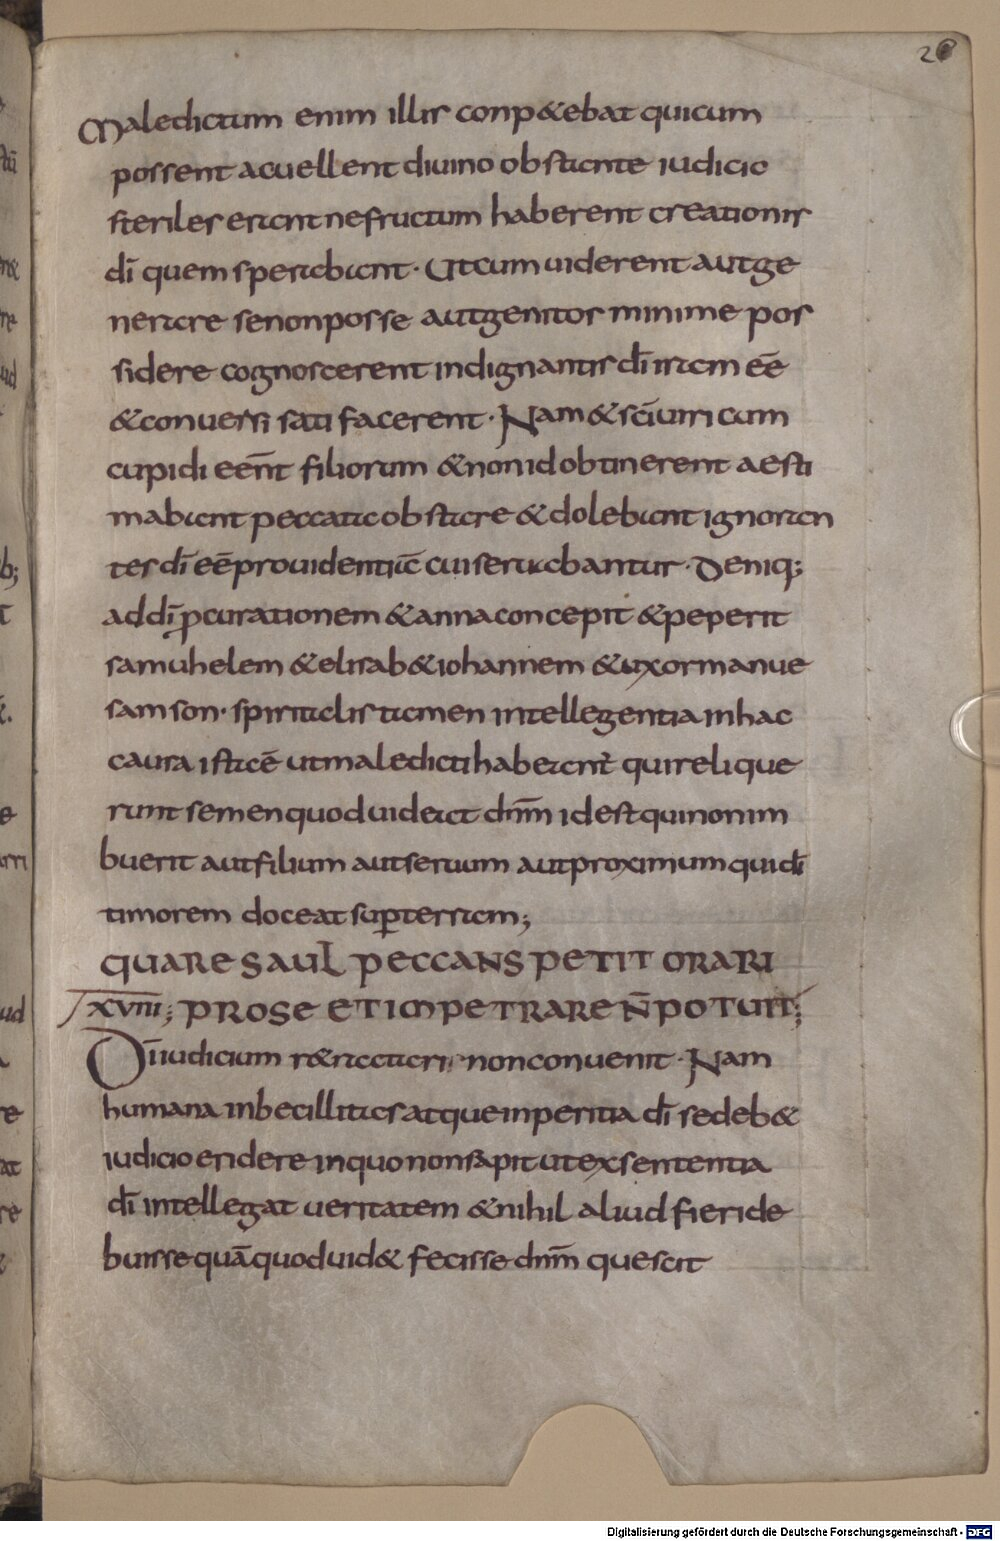 26
Maledictum enim illis conp&ebat qui cum
possent acuellent diuino obstante iudicio
steriles erant ne fructum haberent creationis
dī quem sperabant· Ut cum uiderent aut ge
nerare se non posse aut genitos minime pos
sidere cognoscerent indignantis dī iram eē
& conuersi sati facerent· Nam & sc̄i uiri cum
cupidi eēnt filiorum & non id obtinerent aesti
mabant peccata obstare & dolebant ignoran
tes dī eē prouidentiā cui seruabantur· Deniq;
ad dī p̄curationem & anna concepit & peperit
samuhelem & elisab& iohannem & uxor manue
samson· spiritalis tamen intellegentia in hac
causa ista ē ut maledicti habeant̄ qui relique
runt semen quod uideat dnm̄ id est qui non im
buerit aut filium aut seruum aut proximum qui dī
timorem doceat sup̄ terram;
QUARE SAUL PECCANS PETIT ORARI
XVIII; PRO SE ET IMPETRARE N̄ POTUIT;
Dī iudicium r&ractari non conuenit· Nam
humana inbecillitas atque inperitia dī se deb&
iudicio eridere in quo non sapit ut ex sententia
dī intellegat ueritatem & nihil aliud fieri de
buisse quā quod uid& fecisse dnm̄ que scit
Digitalisierung gefördert durch die Deutsche Forschungsgemeinschaft - DFG